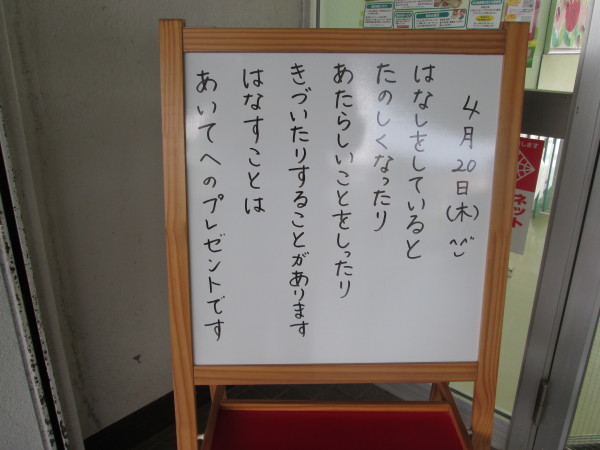 4月20日(木)
はなしをしていると
たのしくなったり
あたらしいことをしったり
きづいたりすることがあります
はなすことは
あいてへのプレゼントです
ネット
します